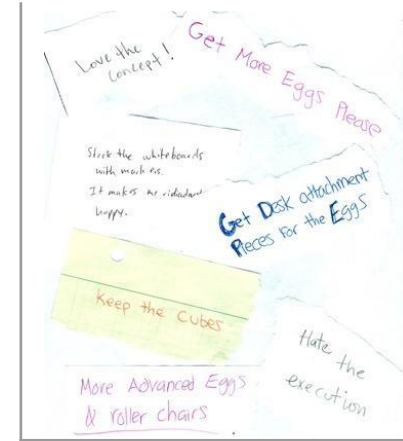 Love the
concept!
Get More Eggs Please
Stock the whiteboards
with markers.
It makes me
happy.
Get Desk attachment
Pieces For the Eggs
Keep the Cubes
Hate the
execution
More Advanced Eggs
& roller chairs